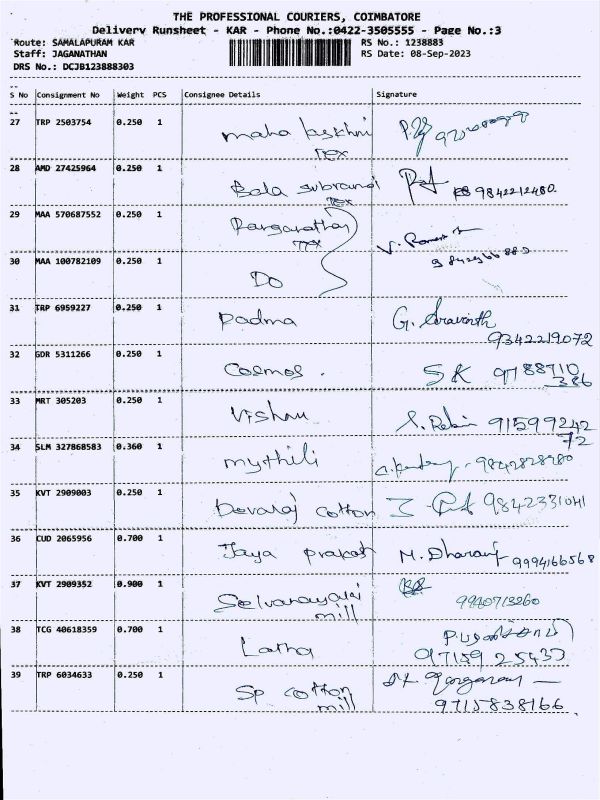 THE PROFESSIONAL COURIERS, COIMBATORE
Delivery Runsheet - KAR - Phone No.:0422-3505555 - Page No.:3
Route: SAMALAPURAM KAR RS No.: 1238883
Staff: JAGANATHAN RS Date: 08-Sep-2023
DRS No.: DCJB123888303
S No Consignment No Weight PCS Consignee Details Signature
27 TRP 2503754 0.250 1 maha laskhni
Tex
28 AMD 27425964 0.250 1 Bala subramani 9842212480
Tex
29 MAA 570687552 0.250 1 Ranganathan
Tex
30 MAA 100782109 0.250 1 Do
31 TRP 6959227 0.250 1 Padma G. Aravinth
9342219072
32 GDR 5311266 0.250 1 Cosmos. SK 9788710
386
33 MRT 305203 0.250 1 Vishnu 91599242
72
34 SLM 327868583 0.360 1 mythili 9842828980
35 KVT 2909003 0.250 1 Devaraj cotton 9842331041
36 CUD 2065956 0.700 1 Jaya prakash M. Dharani 9994166568
37 KVT 2909352 0.900 1 Selvanayagi
mill 9940713260
38 TCG 40618359 0.700 1 Latha
97159 25433
39 TRP 6034633 0.250 1 Sp cotton
mill 9715838166